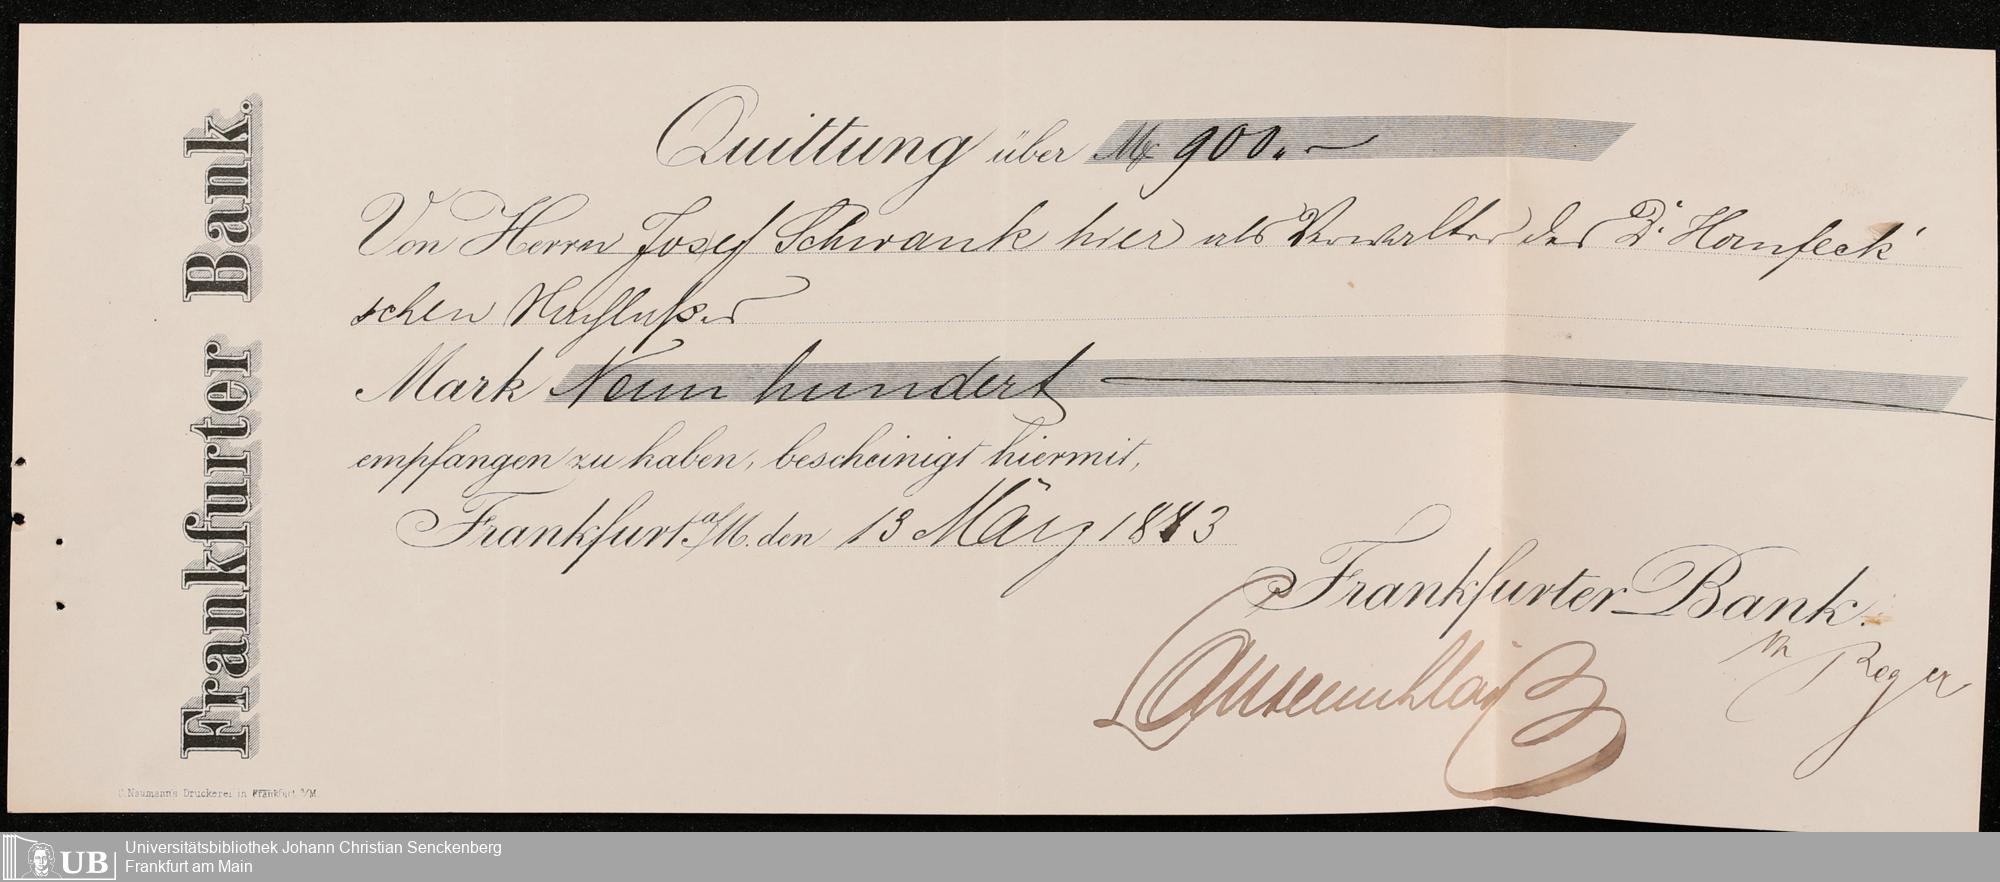 Frankfurter Bank.
Quittung über M 900.—
Von Herrn Josef Schwank hier als Verwalter des Dr Hanfeck'
schen Nachlaßes
Mark Neun hundert
empfangen zu haben, bescheinigt hiermit,
Frankfurt a/M. den 13 März 1883
Frankfurter Bank.
Reger
C. Naumann's Druckerei in Frankfurt a/M.
UB
Universitätsbibliothek Johann Christian Senckenberg
Frankfurt am Main